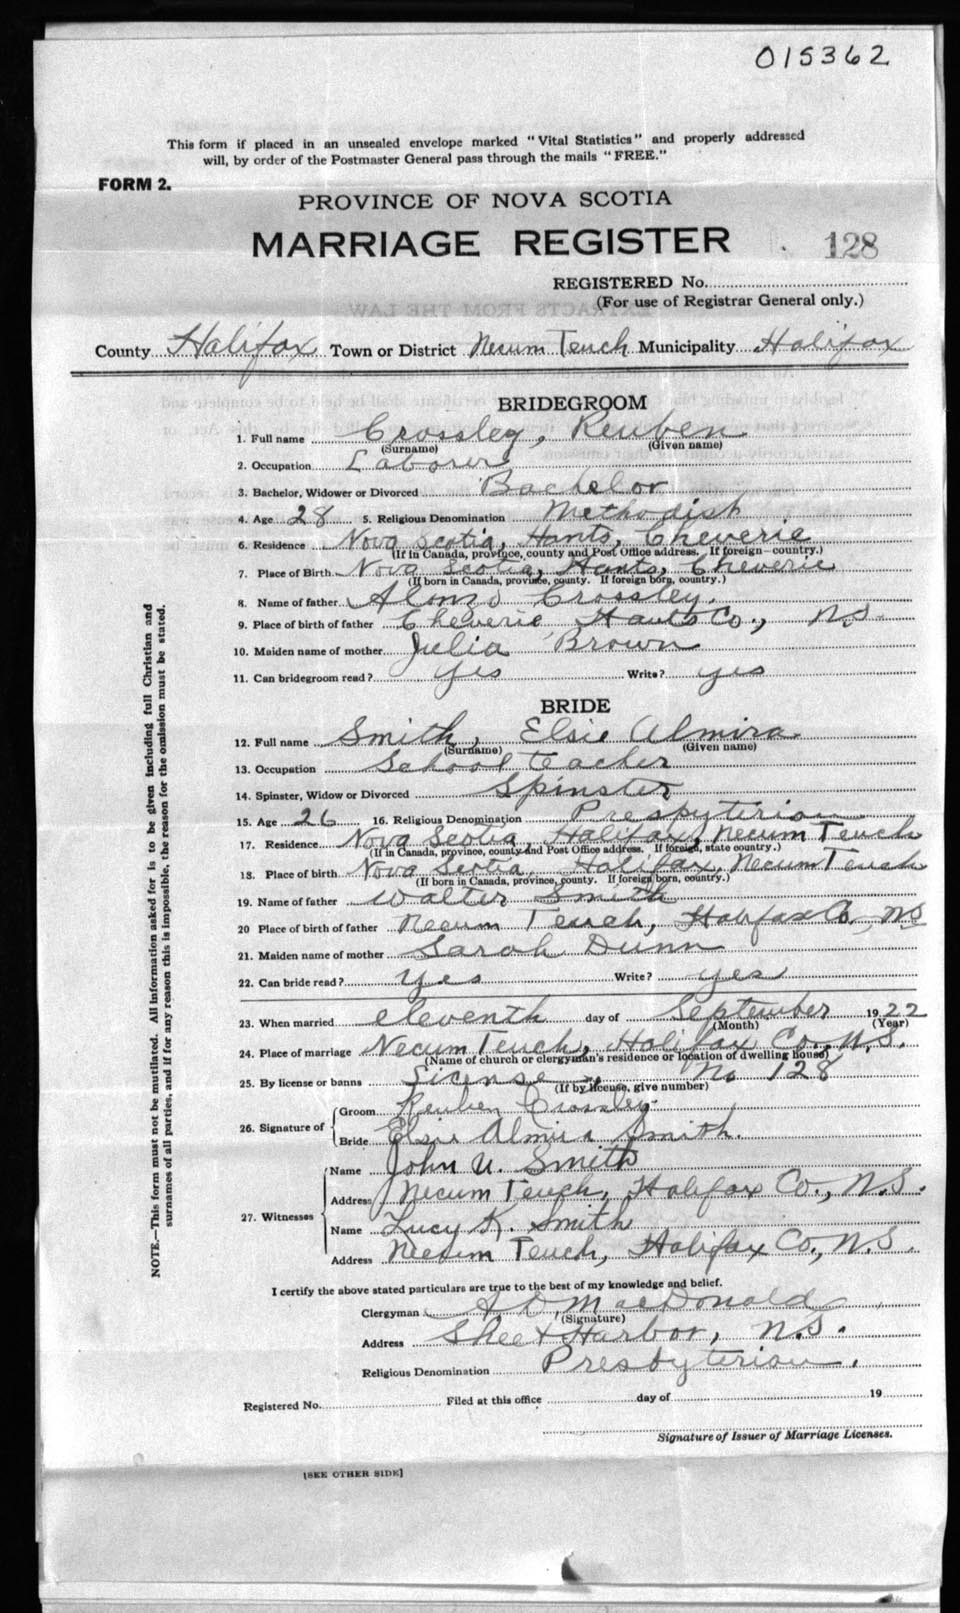 015362
This form if placed in an unsealed envelope marked "Vital Statistics" and properly addressed
will, by order of the Postmaster General pass through the mails "FREE."
FORM 2.
PROVINCE OF NOVA SCOTIA
MARRIAGE REGISTER 128
REGISTERED No.
(For use of Registrar General only.)
County Halifax Town or District Necum Teuch Municipality Halifax
BRIDEGROOM
1. Full name Crossley, Reuben
(Surname) (Given name)
2. Occupation Laborer
3. Bachelor, Widower or Divorced Bachelor
4. Age 28 5. Religious Denomination Methodist
6. Residence Nova Scotia, Hants, Cheverie
(If in Canada, province, county and Post Office address. If foreign—country.)
7. Place of Birth Nova Scotia, Hants, Cheverie
(If born in Canada, province, county. If foreign born, country.)
8. Name of father Alonzo Crossley.
9. Place of birth of father Cheverie Hants Co., N.S.
10. Maiden name of mother Julia Brown
11. Can bridegroom read? Yes Write? yes
BRIDE
12. Full name Smith, Elsie Almira
(Surname) (Given name)
13. Occupation School teacher
14. Spinster, Widow or Divorced Spinster
15. Age 26 16. Religious Denomination Presbyterian
17. Residence Nova Scotia, Halifax, Necum Teuch
(If in Canada, province, county and Post Office address. If foreign, state country.)
18. Place of birth Nova Scotia, Halifax, Necum Teuch
(If born in Canada, province, county. If foreign born, country.)
19. Name of father Walter Smith
20 Place of birth of father Necum Teuch, Halifax Co, NS
21. Maiden name of mother Sarah Dunn
22. Can bride read? yes Write? yes
23. When married eleventh day of September 1922
(Month) (Year)
24. Place of marriage Necum Teuch, Halifax Co., N.S.
(Name of church or clergyman's residence or location of dwelling house)
25. By license or banns License No 128
(If by license, give number)
26. Signature of
Groom Reuben Crossley
Bride Elsie Almira Smith.
27. Witnesses
Name John U. Smith
Address Necum Teuch, Halifax Co., N.S.
Name Lucy K. Smith
Address Necum Teuch, Halifax Co., N.S.
I certify the above stated particulars are true to the best of my knowledge and belief.
Clergyman MacDonald
(Signature)
Address Sheet Harbor, N.S.
Religious Denomination Presbyterian.
Registered No. Filed at this office day of 19
Signature of Issuer of Marriage Licenses.
[SEE OTHER SIDE]
NOTE.—This form must not be mutilated. All information asked for is to be given including full Christian and
surnames of all parties, and if for any reason this is impossible, the reason for the omission must be stated.